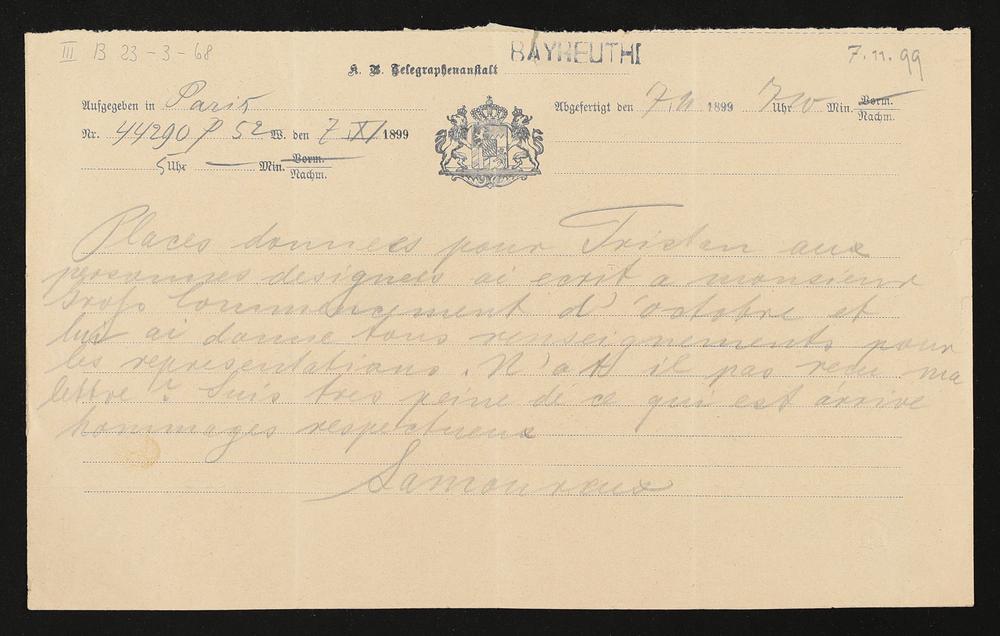 III B 23-3-68
BAYREUTH
7.11.99
K. B. Telegraphenanstalt
Aufgegeben in Paris
Abgefertigt den 7.11 1899 7 Uhr 10 Min. Vorm. Nachm.
Nr. 44290 P 52 W. den 7 XI 1899
5 Uhr — Min. Vorm. Nachm.
Places donnees pour Tristan aux
personnes designees ai ecrit a monsieur
Gross Commencement d'octobre et
lui ai donne tous renseignements pour
les representations. N'a t il pas recu ma
lettre? Suis tres peine de ce qui est arrive
hommages respectueux
Lamoureux